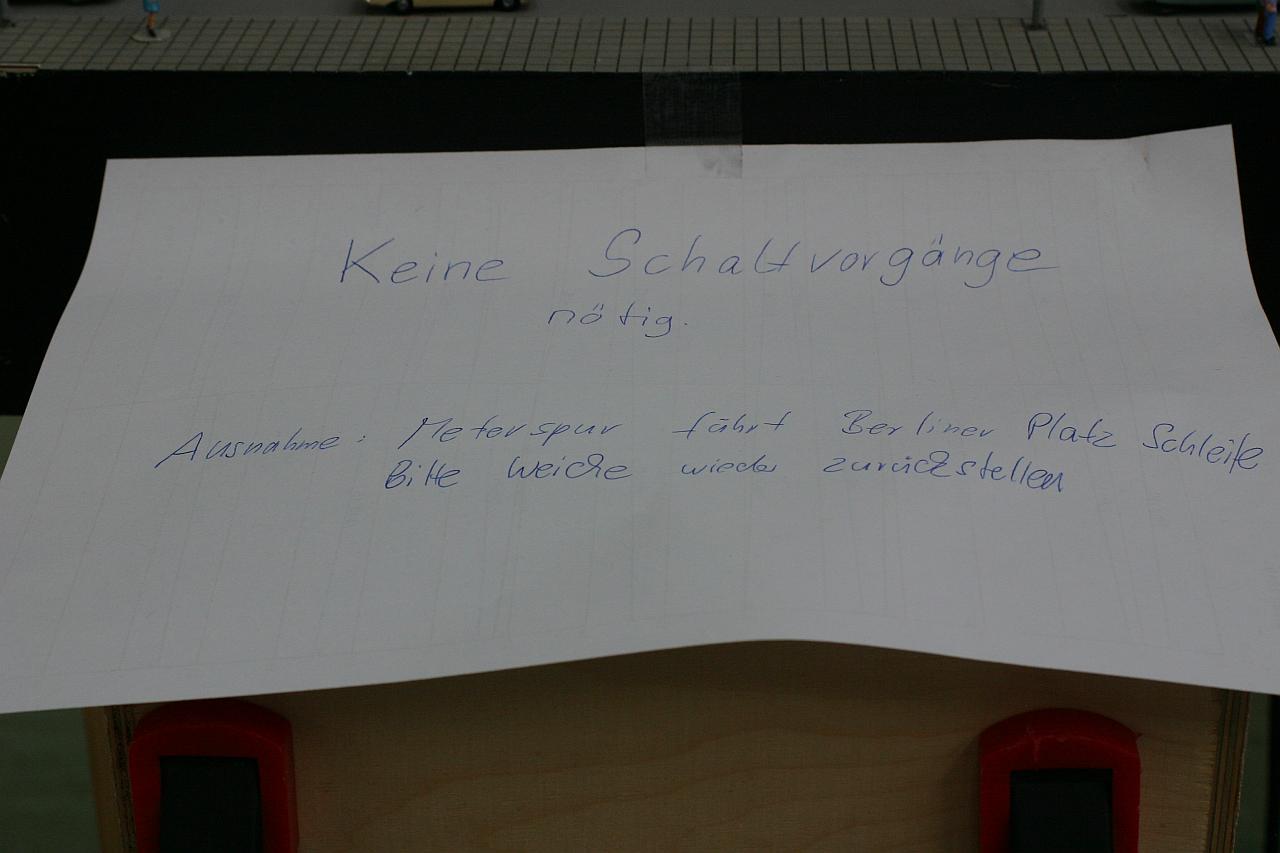 Keine Schaltvorgänge
nötig.
Ausnahme: Meterspur fährt Berliner Platz Schleife
Bitte Weiche wieder zurückstellen